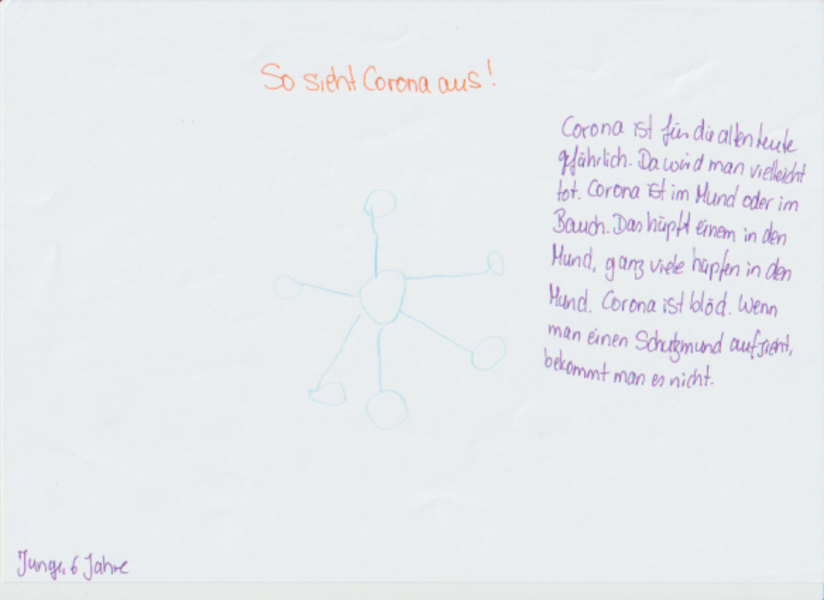 So sieht Corona aus!
Corona ist für die alten Leute
gefährlich. Da wird man vielleicht
tot. Corona ist im Mund oder im
Bauch. Das hüpft einem in den
Mund, ganz viele hüpfen in den
Mund. Corona ist blöd. Wenn
man einen Schutzmund aufzieht,
bekommt man es nicht.
Junge, 6 Jahre